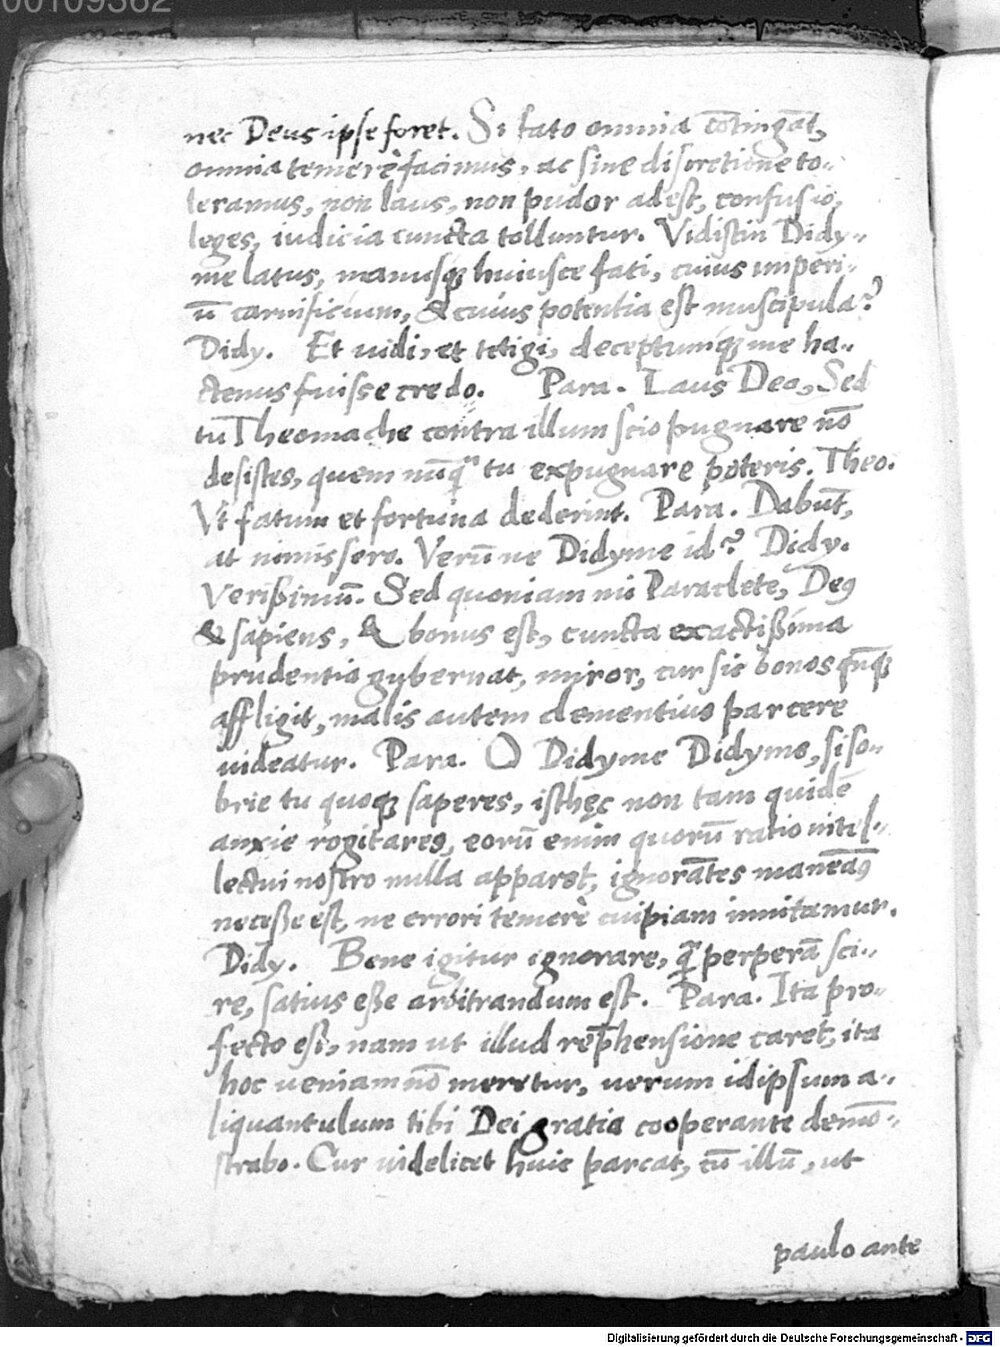 00109362
nec Deus ipse foret. Si fato omnia cōtingāt,
omnia temerè facimus, ac sine discretione to-
leramus, non laus, non pudor adest, confusio,
leges, iudicia cuncta tolluntur. Vidistin Didy-
me latus, manusq; huiusce fati, cuius imperi-
ū carnificium, & cuius potentia est muscipula?
Didy. Et uidi, et tetigi, deceptumq; me ha-
ctenus fuisse credo. Para. Laus Deo, Sed
tu Theomache contra illum scio pugnare nō
desistes, quem nūq̃ tu expugnare poteris. Theo.
Vt fatum et fortuna dederint. Para. Dabūt,
at nimis sero. Verū ne Didyme id? Didy.
Verißimū. Sed quoniam mi Paraclete, Deꝯ
& sapiens, & bonus est, cuncta exactißima
prudentia gubernat, miror, cur sic bonos qūq;
affligit, malis autem clementius parcere
uideatur. Para. O Didyme Didyme, si so-
brie tu quoq; saperes, isthęc non tam quidē
anxie rogitares, eorū enim quorū ratio intel-
lectui nostro nulla apparet, ignorātes maneāꝯ
neceße est, ne errori temerè cuipiam innitamur.
Didy. Bene igitur ignorare, q̃ perperā sci-
re, satius eße arbitrandum est. Para. Ita pro-
fecto est, nam ut illud rep̄hensione caret, ita
hoc ueniam nō meretur, uerum id ipsum a-
liquantulum tibi Dei gratia cooperante demō-
strabo. Cur uidelicet huic parcat, cū illū, ut
paulo ante
Digitalisierung gefördert durch die Deutsche Forschungsgemeinschaft - DFG